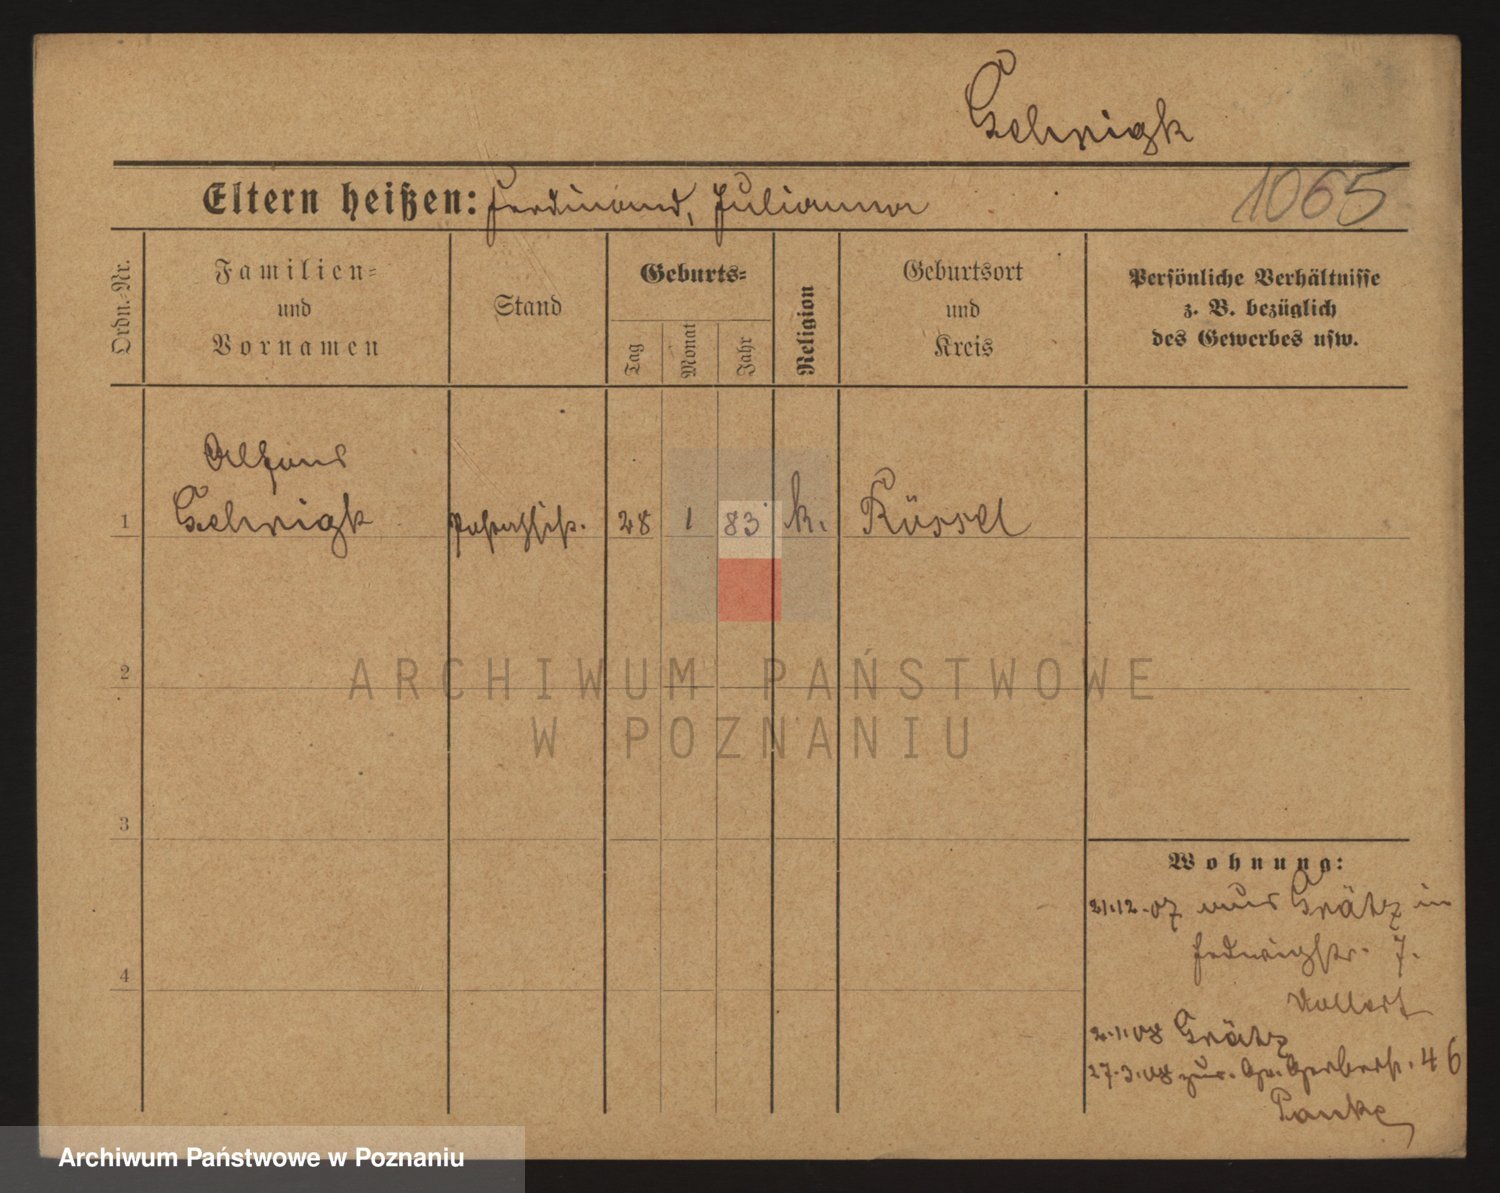 Gehrigk
Eltern heißen: Ferdinand, Julianna
1065
Ordn.-Nr.
Familien-
und
Vornamen
Stand
Geburts-
Tag
Monat
Jahr
Religion
Geburtsort
und
Kreis
Persönliche Verhältnisse
z. B. bezüglich
des Gewerbes usw.
Alfons
1 Gehrigk 28 1 83 k. Rössel
2
3
4
Wohnung:
21.12.07 aus Grätz in
Hedwigstr. 7.
Vollert
2.1.08 Grätz
27.3.08 zur. Gr. Gerberstr. 46
Panke
ARCHIWUM PAŃSTWOWE
W POZNANIU
Archiwum Państwowe w Poznaniu